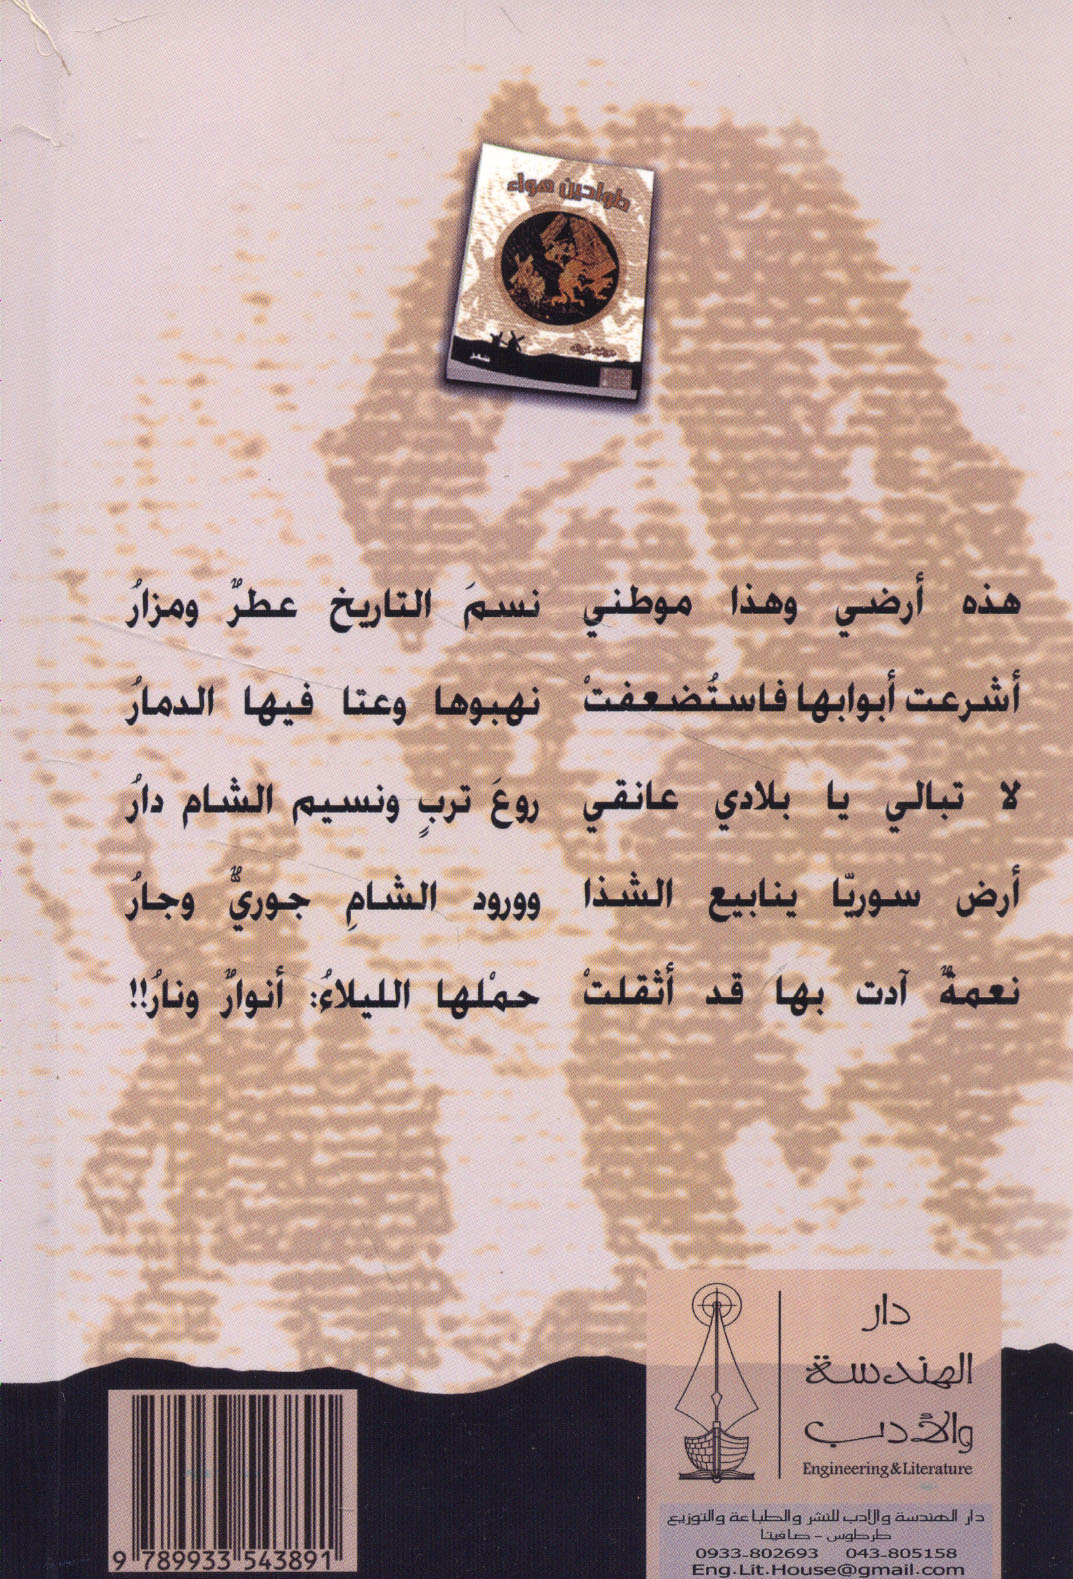 طواحين هواء
شعر
هذه أرضي وهذا موطني نسمَ التاريخ عطرٌ ومزارُ
أشرعت أبوابها فاستُضعفتْ نهبوها وعتا فيها الدمارُ
لا تبالي يا بلادي عانقي روعَ تربٍ ونسيم الشام دارُ
أرض سوريّا ينابيع الشذا وورود الشامِ جوريٌّ وجارُ
نعمةٌ آدت بها قد أثقلتْ حمْلها الليلاءُ: أنوارٌ ونارُ!!
دار
الهندسة
والأدب
Engineering&Literature
دار الهندسة والادب للنشر والطباعة والتوزيع
طرطوس - صافيتا
0933-802693 043-805158
Eng.Lit.House@gmail.com
9 789933 543891